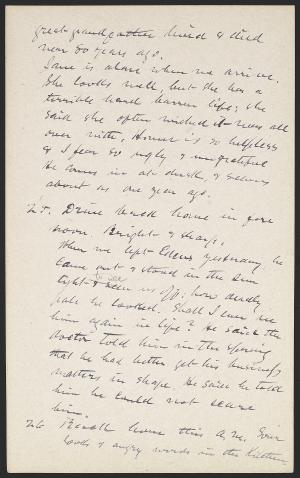 great-grandfather lived & died
near 80 years ago.
Jane is alone when we arrive.
She looks well, but she has a
terrible hard barren life; she
said she often wished it was all
over with, Homer is so helpless
& I fear so ugly & ungrateful
He comes in at dusk, & seems
about as one year ago.
27. Drive back home in fore
noon. Bright & sharp.
When we left Edens yesterday he
came out & stood in the sun
light to see us off; how deadly
pale he looked. Shall I ever see
him again in life? He said the
doctor told him in the spring
that he had better get his business
matters in shape. He said he told
him he could not scare
him.
28 Back home this A.M. Sour
looks & angry words in the kitchen